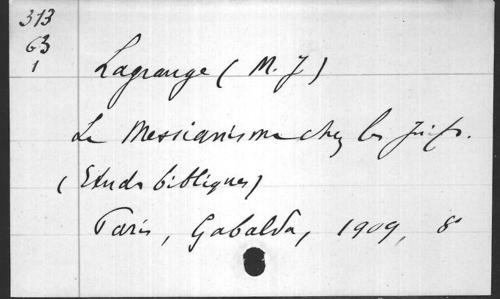 313
63
1
Lagrange (M. J)
Le Messianisme chez les Juifs.
(Etudes bibliques)
Paris, Gabalda, 1909, 8°